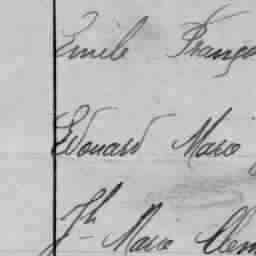 Emile Franço
Edouard Marie
Jh Marie Clem